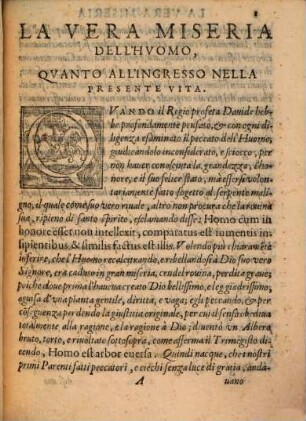 LA VERA MISERIA
DELL'HVOMO,
QVANTO ALL'INGRESSO NELLA
PRESENTE VITA.
QVANDO il Regio profeta Dauide heb-
be profondamente pensato, & con ogni di-
ligenza esaminato il peccato dell'Huomo,
giudicandolo inconsiderato, e sciocco, per
non hauer conosciuta la grandezza, l'ho-
nore, e il suo felice stato, mà essersi volon-
tariamente fatto sogetto al serpente mali-
gno, il quale come suo vero riuale, altro non procura che la rouina
sua, ripieno di santo spirito, esclamando disse: Homo cum in
honore esset non intellexit, comparatus est iumentis in-
sipientibus, & similis factus est illis. Volendo più chiaramẽte
inferire, che l'Huomo recalcitrando, e rebellandosi à Dio suo vero
Signore, era caduto in gran miseria, crudel rouina, perdita graue;
poiche doue prima l'haueua creato Dio bellissimo, e leggiadrissimo,
aguisa d'vna pianta gentile, diritta, e vaga; egli peccando, & per
cõseguenza perdendo la giustitia originale, per cui il senso obediua
totalmente alla ragione, e la ragione à Dio; diuentò vn Albero
bruto, torto, e riuoltato sottosopra, come afferma il Trimegisto di-
cendo, Homo est arbor euersa. Quindi nacque, che i nostri
primi Parenti fatti peccatori, e ciechi senza luce di gratia, anda-
A
uano